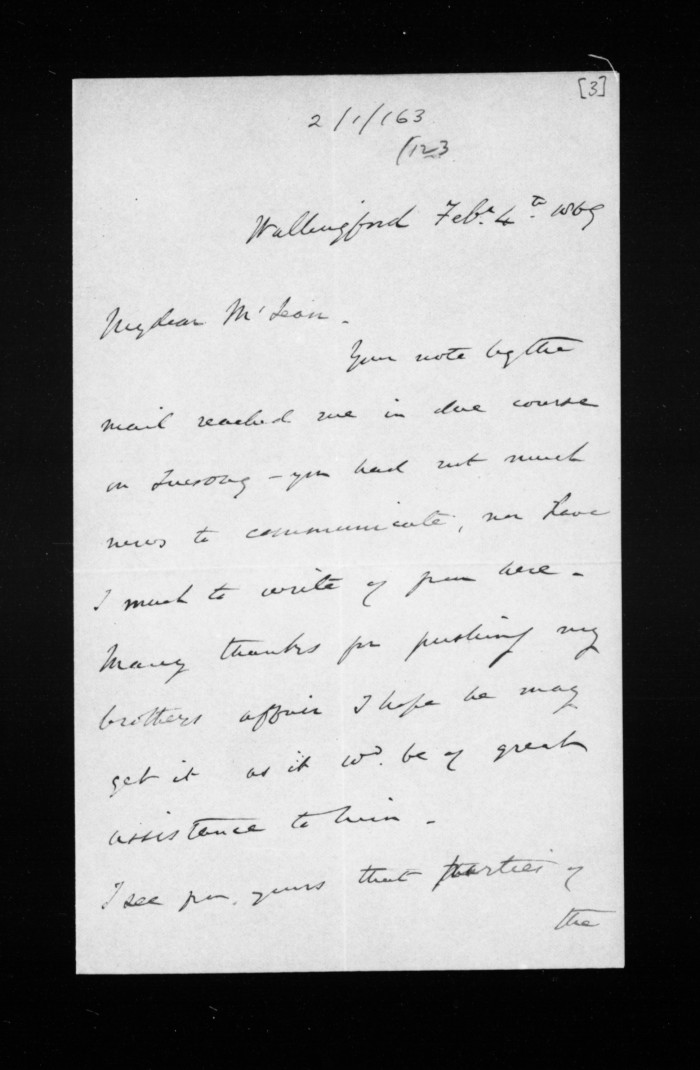 [3]
2/1/163
(123
Wallingford Feby. 4th. 1869
My dear McLean -
Your note by the
mail reached me in due course
on Tuesday - you had not much
news to communicate, nor have
I much to write of from here -
Many thanks for pushing my
brothers affair I hope he may
get it as it wd. be of great
assistance to him -
I see from yours that parties of
the